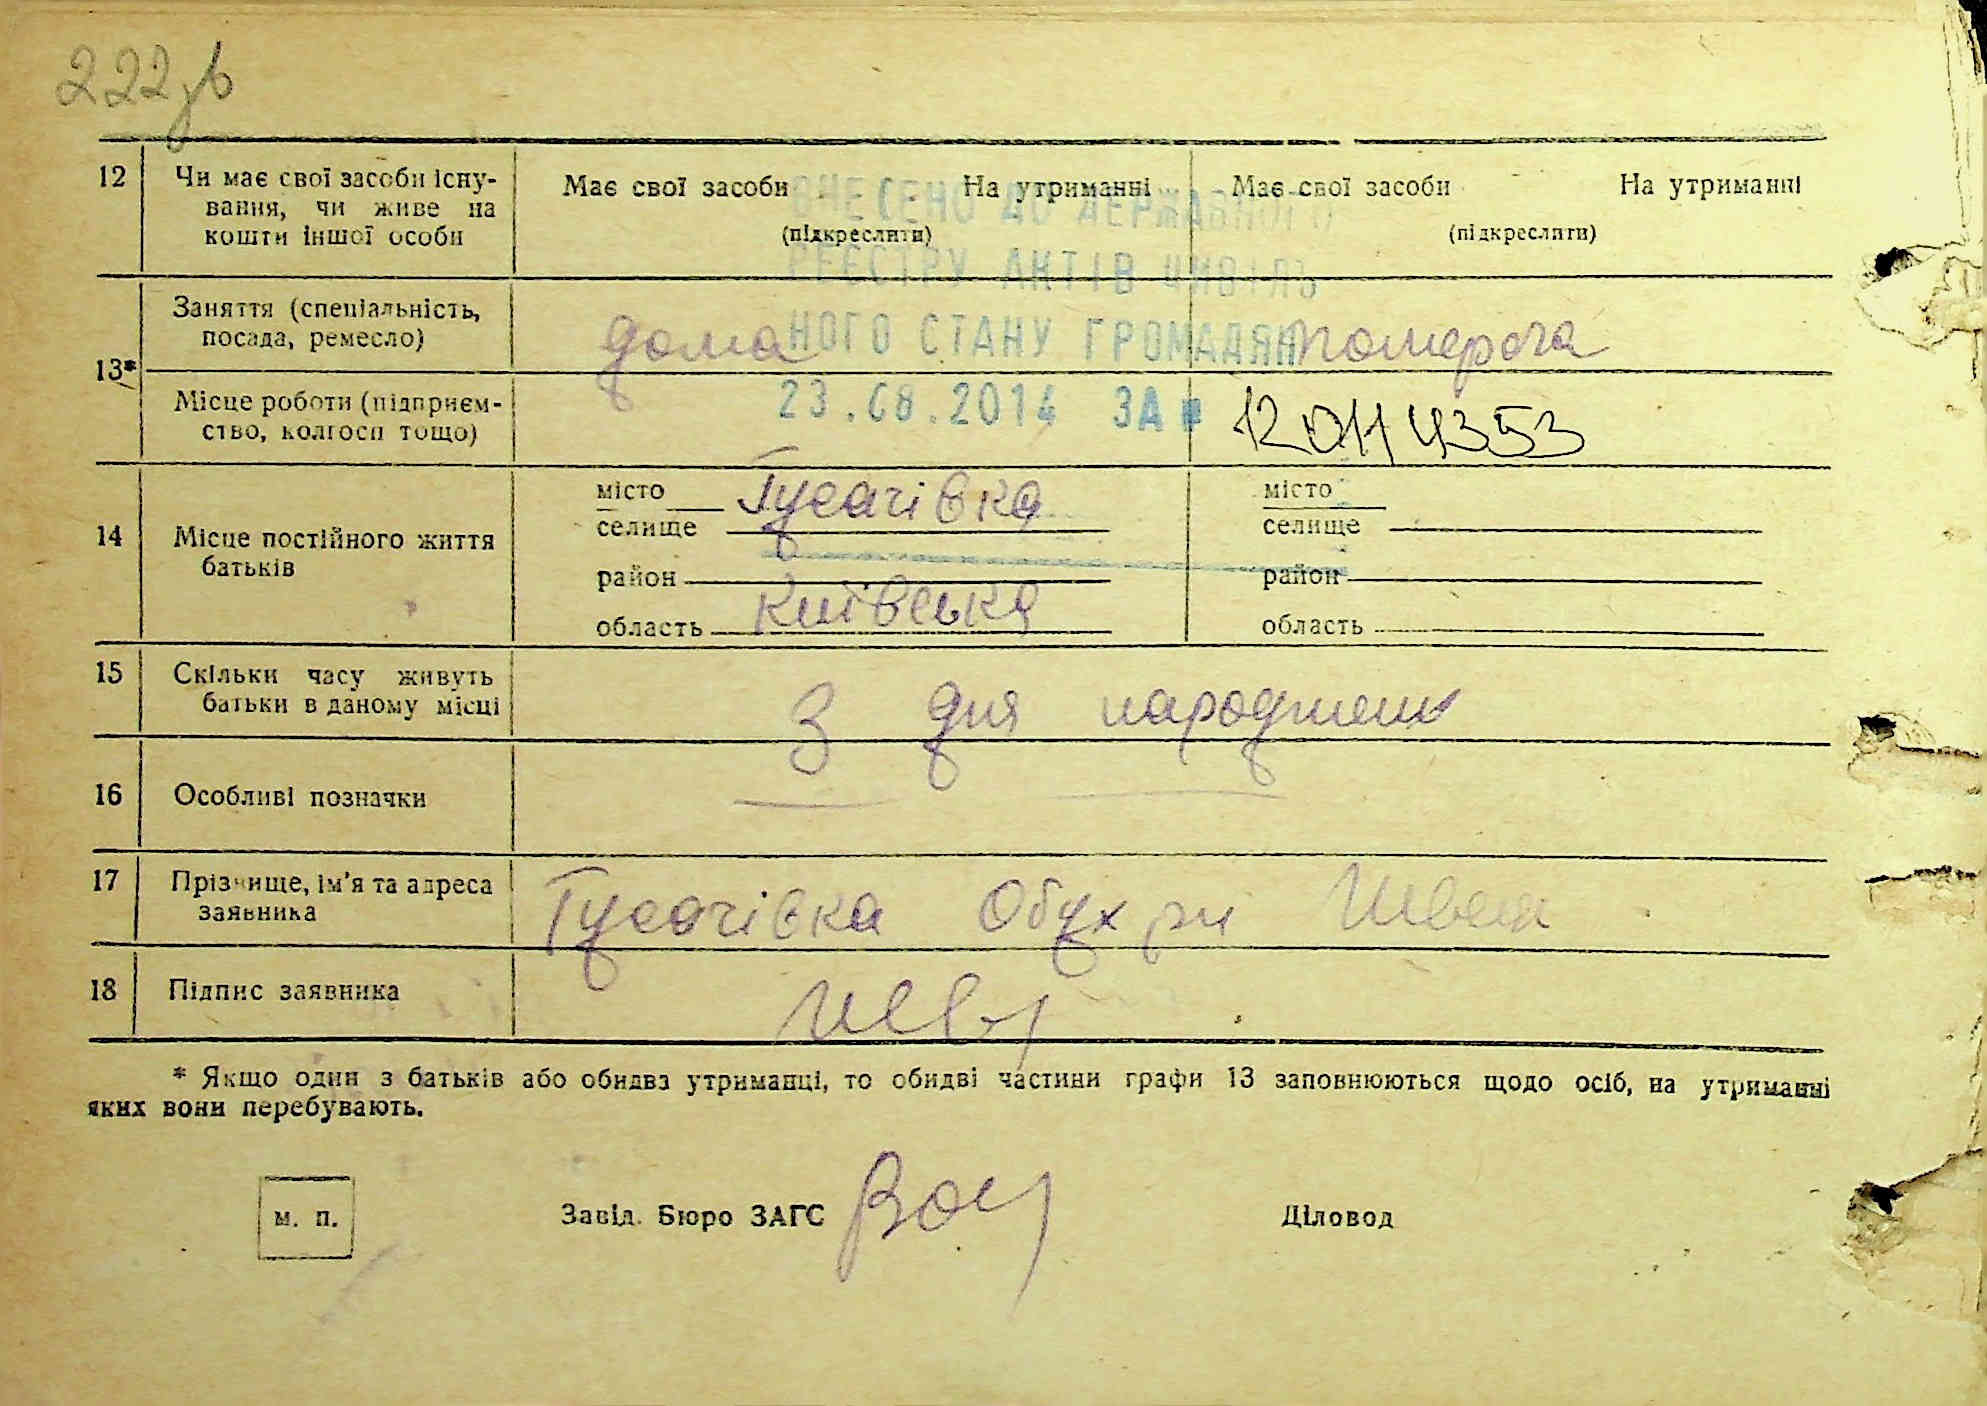 222зв
12 Чи має свої засоби існу- Має свої засоби На утриманні Має свої засоби На утриманні
вання, чи живе на
кошти іншої особи (підкреслити) (підкреслити)
ВНЕСЕНО ДО ДЕРЖАВНОГО
РЕЄСТРУ АКТІВ ЦИВІЛЬ
НОГО СТАНУ ГРОМАДЯН
23.08.2014 ЗА №
13* Заняття (спеціальність,
посада, ремесло) дома
Місце роботи (підприєм-
ство, колгосп тощо)
місто Гусачівка місто
14 Місце постійного життя селище селище
батьків район район
область Київська область
15 Скільки часу живуть
батьки в даному місці З дня народження
16 Особливі позначки
17 Прізвище, ім'я та адреса
заявника Гусачівка Обух рн
18 Підпис заявника
* Якщо один з батьків або обидва утриманці, то обидві частини графи 13 заповнюються щодо осіб, на утриманні
яких вони перебувають.
м. п. Завід. Бюро ЗАГС Діловод